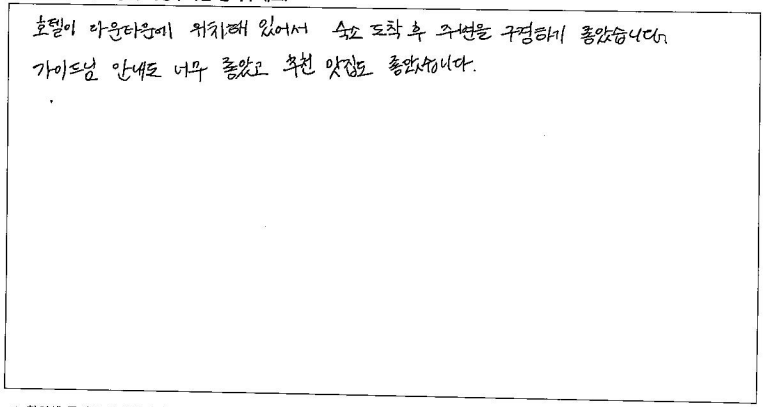 호텔이 다운타운에 위치해 있어서 숙소 도착 후 주변을 구경하기 좋았습니다.
가이드님 안내도 너무 좋았고 추천 맛집도 좋았습니다.